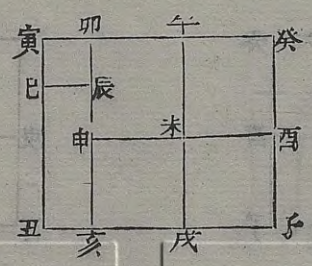 寅 卯 午 癸
巳 辰
申 未 酉
丑 亥 戌 子